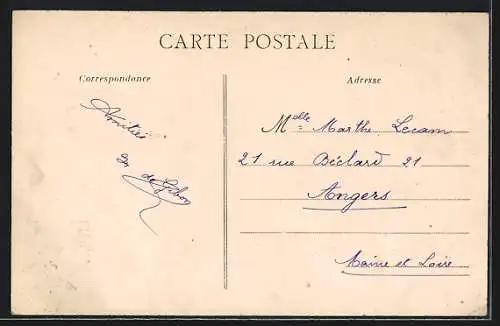 CARTE POSTALE
Correspondance
Adresse
Amitiés
Mdlle Marthe Lecam
21 rue Béclard 21
Angers
Maine et Loire